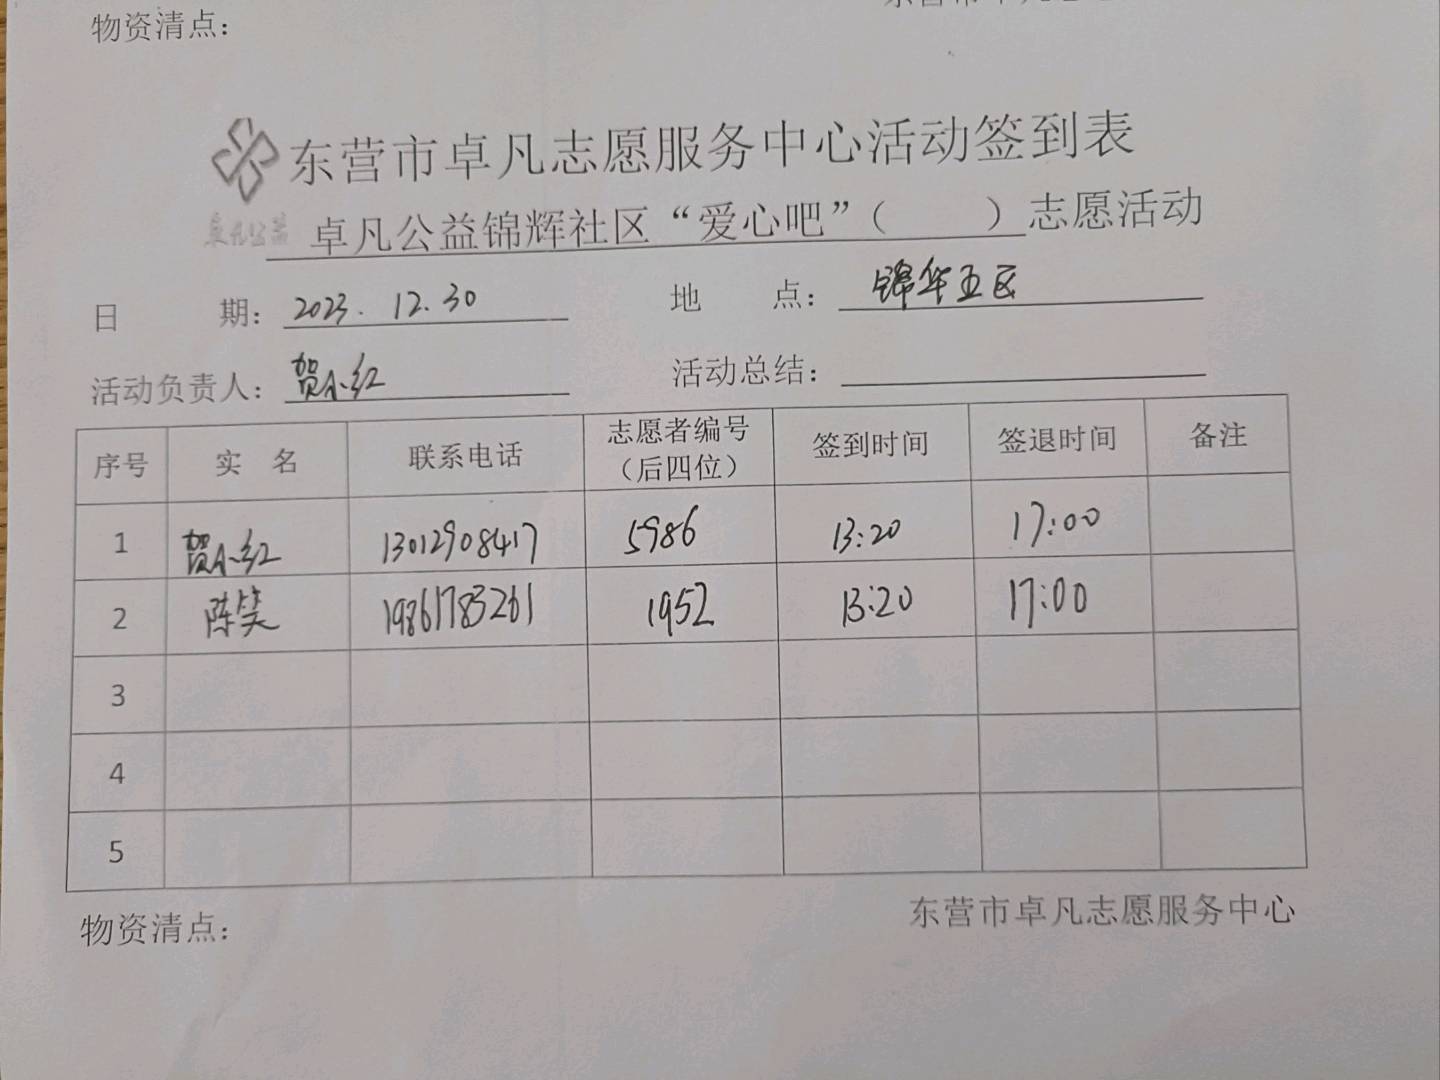 物资清点：
东营市卓凡志愿服务中心活动签到表
卓凡公益
卓凡公益锦辉社区“爱心吧”（ ）志愿活动
日 期：2023.12.30 地 点：锦华五区
活动负责人：贺小红 活动总结：
序号 实 名 联系电话 志愿者编号（后四位） 签到时间 签退时间 备注
1 贺小红 13012908417 5986 13:20 17:00
2 陈笑 19861783261 1952 13:20 17:00
3
4
5
物资清点： 东营市卓凡志愿服务中心